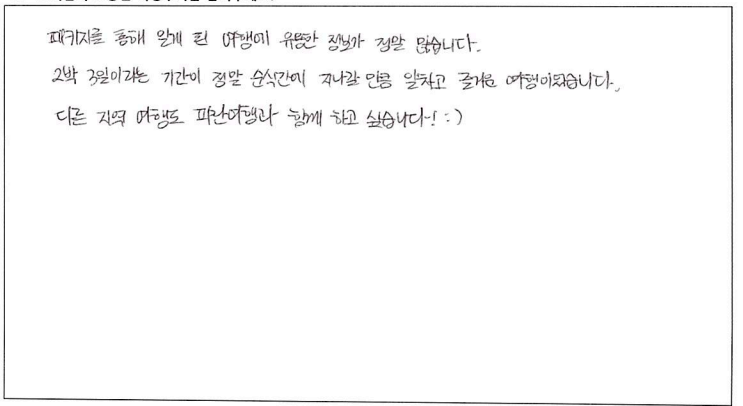 패키지를 통해 알게 된 여행에 유용한 정보가 정말 많습니다.
2박 3일이라는 기간이 정말 순식간에 지나갈 만큼 알차고 즐거운 여행이었습니다.
다른 지역 여행도 파란여행과 함께 하고 싶습니다! :)